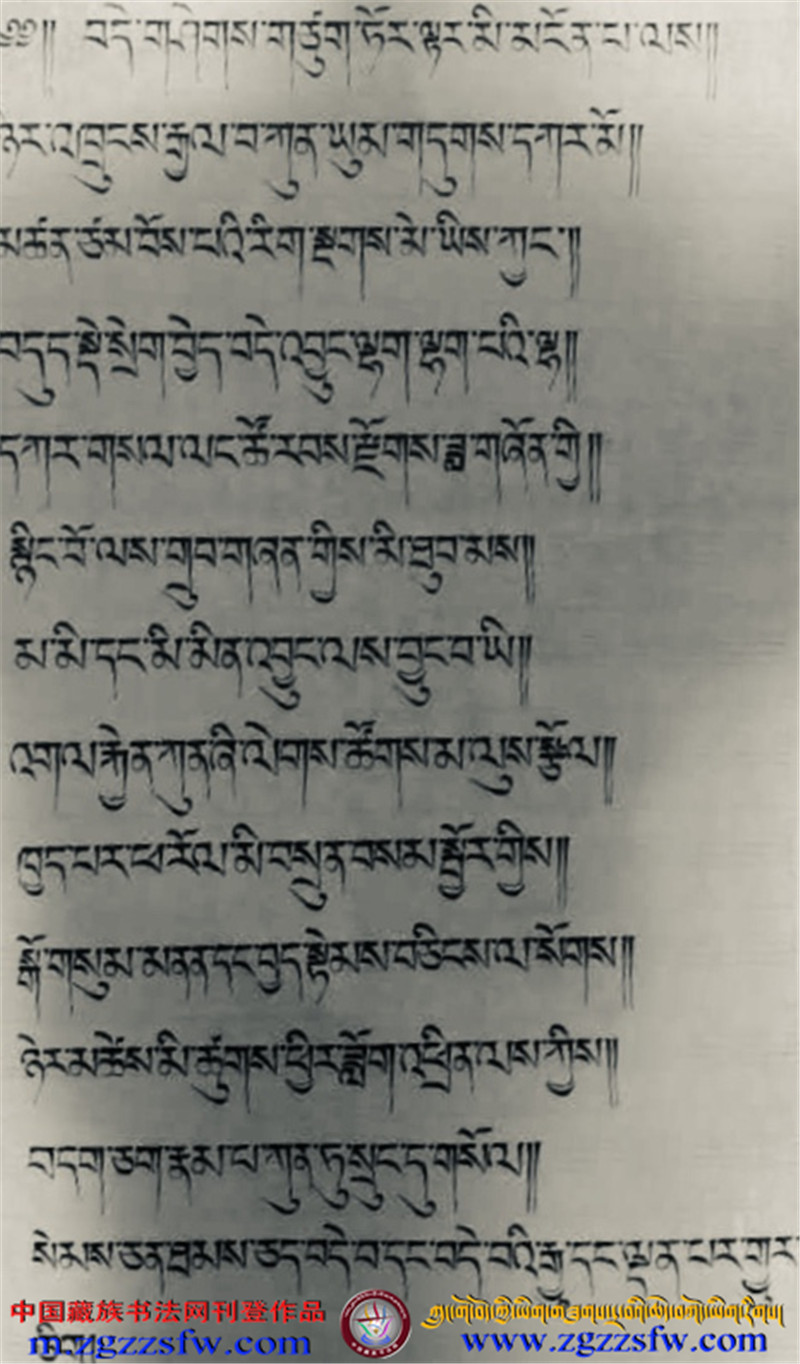 ༄༅།། བདེ་གཤེགས་གཙུག་ཏོར་ལྟར་མི་མངོན་པ་ལས།།
ཉེར་འཁྲུངས་རྒྱལ་བ་ཀུན་ཡུམ་གདུགས་དཀར་མོ།།
མཚན་ཙམ་བོས་པའི་རིག་སྔགས་མེ་ཡིས་ཀྱང་།།
བདུད་སྡེ་སྲེག་བྱེད་བདེ་འབྱུང་ལྷག་ལྷག་པའི་ལྷ།།
དཀར་གསལ་ལང་ཚོ་རབས་རྫོགས་ཟླ་གཞོན་གྱི།།
སྙིང་པོ་ལས་གྲུབ་གཞན་གྱིས་མི་ཐུབ་མས།།
མ་མི་དང་མི་མིན་འབྱུང་ལས་བྱུང་བ་ཡི།།
འགལ་རྐྱེན་ཀུན་ཞི་ལེགས་ཚོགས་མ་ལུས་སྩོལ།།
ཁྱད་པར་ཕ་རོལ་མི་བསྲུན་བསམ་སྦྱོར་གྱིས།།
སྒོ་གསུམ་མནན་དང་བྱད་སྟེམས་བཅིངས་ལ་སོགས།།
ཉེར་མཚེས་མི་ཚུགས་ཕྱིར་ཟློག་འཕྲིན་ལས་ཀྱིས།།
བདག་ཅག་རྣམ་པ་ཀུན་ཏུ་སྲུང་དུ་གསོལ།།
སེམས་ཅན་ཐམས་ཅད་བདེ་བ་དང་བདེ་བའི་རྒྱུ་དང་ལྡན་པར་གྱུར་
ཅིག།
中国藏族书法网刊登作品
m.zgzzsfw.com
www.zgzzsfw.com